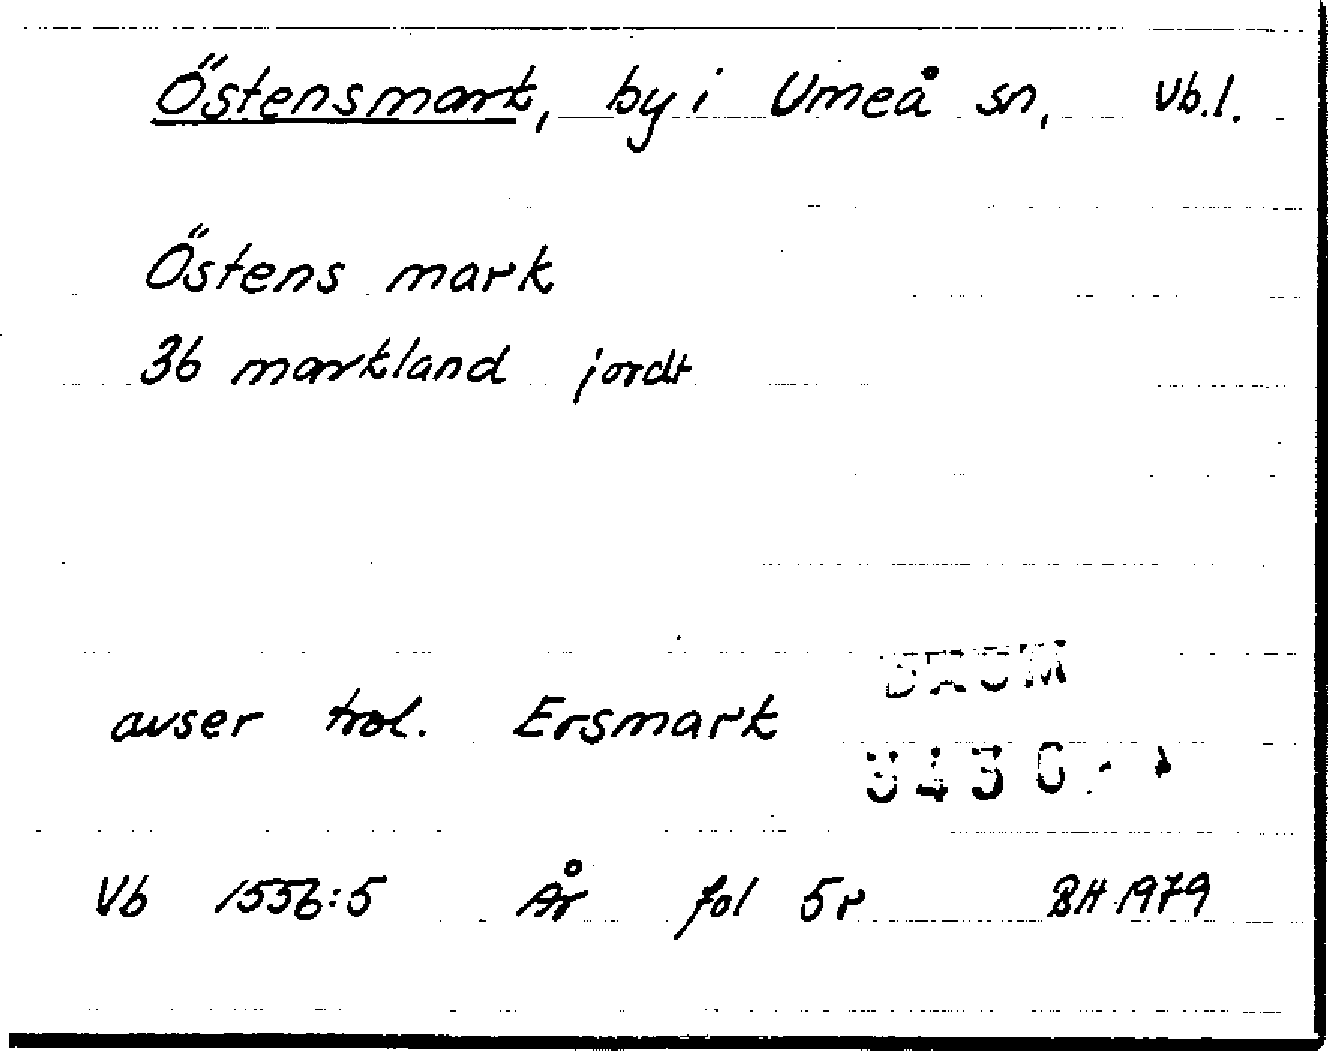 Östensmark, by i Umeå sn, Vb.l.
Östens mark
36 markland jordt
avser trol. Ersmark
DAUM
Vb 1556:5 År fol 5r BH 1979